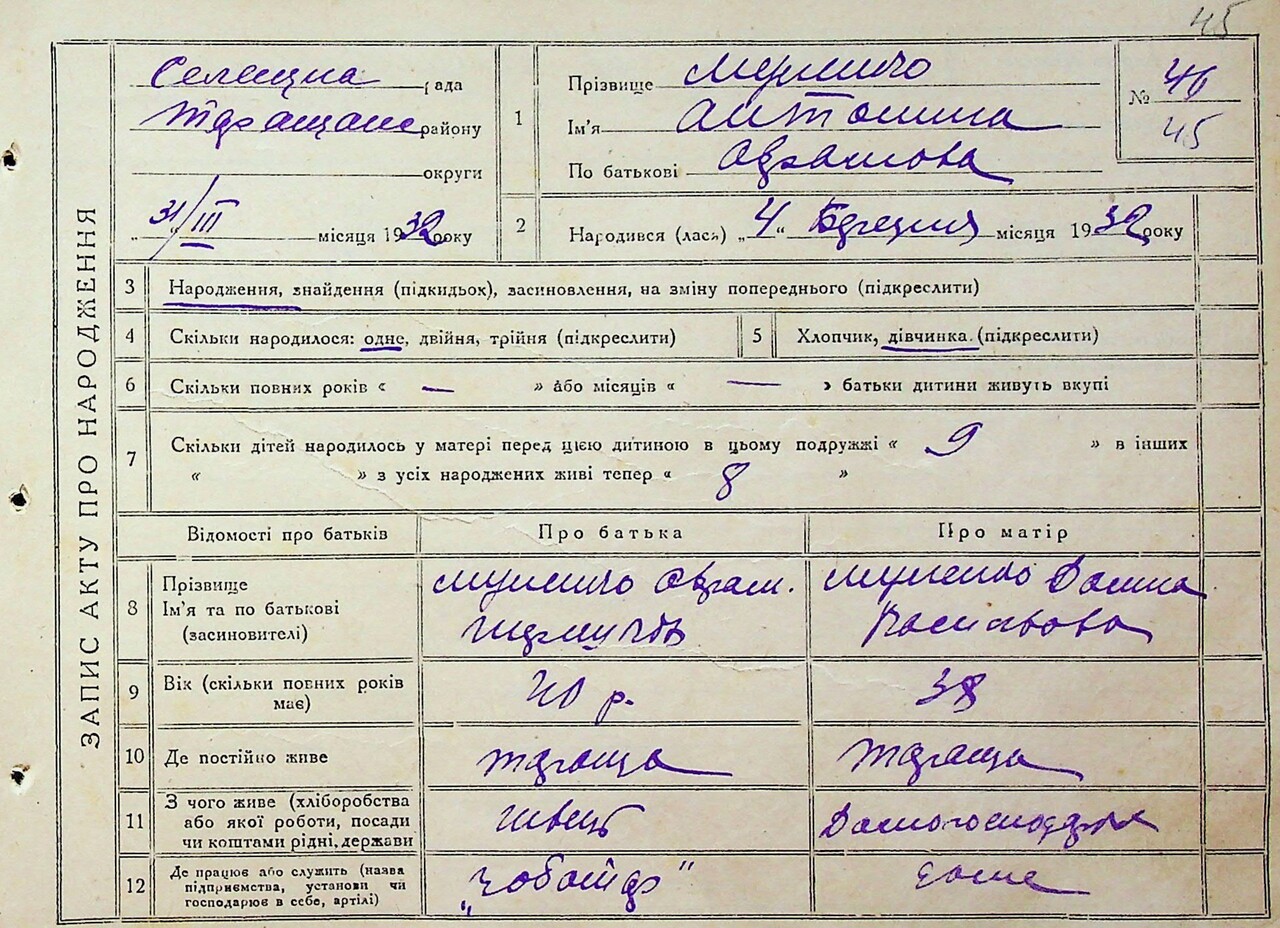 45
ЗАПИС АКТУ ПРО НАРОДЖЕННЯ
Селещна рада
району
округи
31/III місяця 1932 року
1
Прізвище
Ім'я Антонина
По батькові Аврамова
№ 46
45
2
Народився (лася) „4“ Березня місяця 1932 року
3 Народження, знайдення (підкидьок), засиновлення, на зміну попереднього (підкреслити)
4 Скільки народилося: одне, двійня, трійня (підкреслити)
5 Хлопчик, дівчинка. (підкреслити)
6 Скільки повних років « — » або місяців « — » батьки дитини живуть вкупі
7 Скільки дітей народилось у матері перед цією дитиною в цьому подружжі « 9 » в інших
« » з усіх народжених живі тепер « 8 »
Відомості про батьків Про батька Про матір
8 Прізвище
Ім'я та по батькові
(засиновителі)
Аврам.
Домна
Васильова
9 Вік (скільки повних років має) 40 р. 38
10 Де постійно живе Тараща Тараща
11 З чого живе (хліборобства або якої роботи, посади чи коштами рідні, держави швець Домогосподарка
12 Де працює або служить (назва підприємства, установи чи господарює в себе, артілі) „Чоботар“